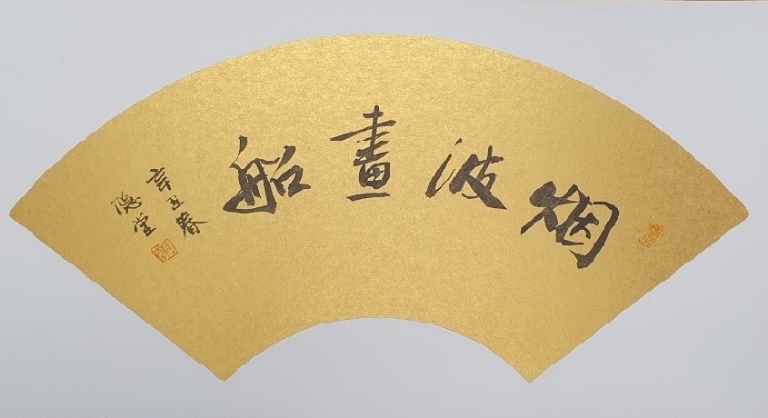 烟波畫船
辛丑春
隐堂